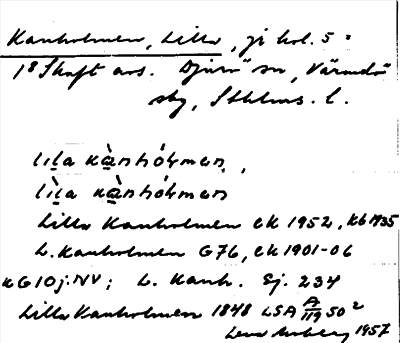 Kanholmen, Lilla, 
18 Skaft ars. Djurö sn, Värmdö
Sthlms. l.
lịla kạ̀nhól̩man,
lị̀la kạ̀nhól̩man
Lilla Kanholmen ek 1952, kb 1935
L. Kanholmen G76, ek 1901-06
KG 10 j. NV; L. Kanh. Sj. 234
Lilla Kanholmen 1848 LSA A/119 50²
1957